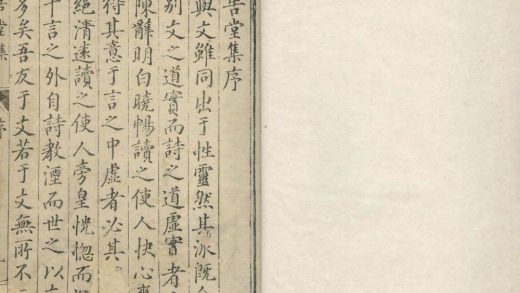 吉堂集序
與文雖同出于性靈然其派旣
別文之道實而詩之道虛實者
陳辭明白曉暢讀之使人快心
得其意于言之中虛者必其
絕清遠讀之使人旁皇恍惚而
十言之外自詩教湮而世之以
矣吾友于文若于文無所不
堂集
序